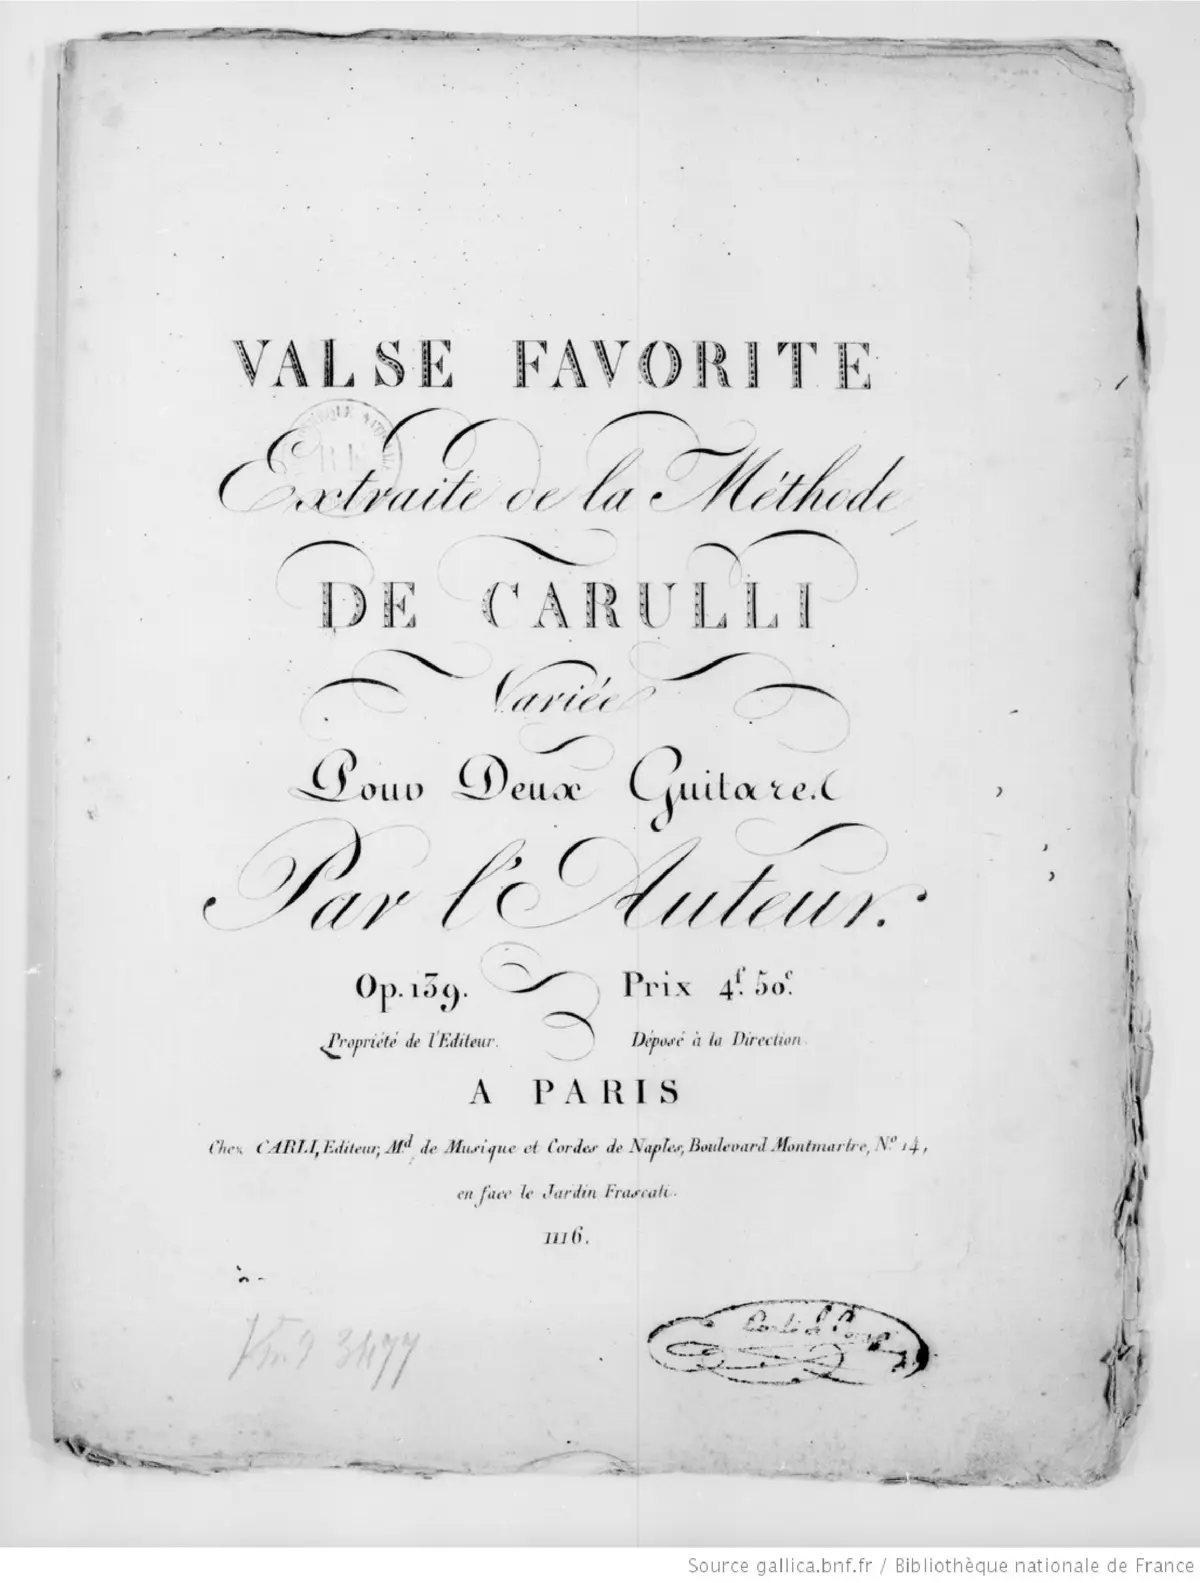 VALSE FAVORITE
Extraite de la Méthode
DE CARULLI
Variée
Pour Deux Guitares
Par l'Auteur.
Op. 139. Prix 4f. 50c.
Propriété de l'Editeur. Déposé à la Direction.
A PARIS
Chez CARLI, Editeur, Md. de Musique et Cordes de Naples, Boulevard Montmartre, No. 14,
en face le Jardin Frascati.
1116.
3477
Source gallica.bnf.fr / Bibliothèque nationale de France